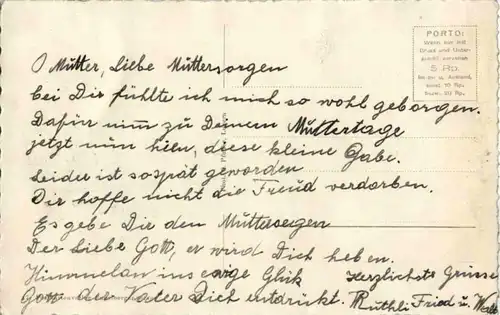 PORTO:
Wenn nur mit
5 Rp.
O Mütter, Liebe Müttersorgen
bei Dir fühlte ich mich so wohl geborgen.
Dafür nim zu Deinem Müttertage
jetzt nim hien, diese kleine Gabe.
Leider ist so spät geworden
Dir hoffe nicht die Freud verdorben.
Es gebe Dir den Müttersegen
Der Liebe Gott, er wird Dich heben.
Himmelan ins ewige Glük
Gott der Vater Dich entdrükt.
Herzlichste Grüsse
Rüthli Fried u.